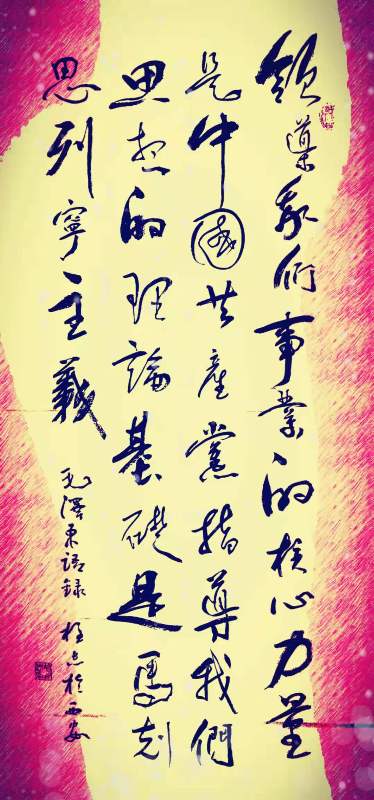 領導我們事業的核心力量
是中國共產黨指導我們
思想的理論基礎是馬克
思列寧主義
毛澤東語録 於西安